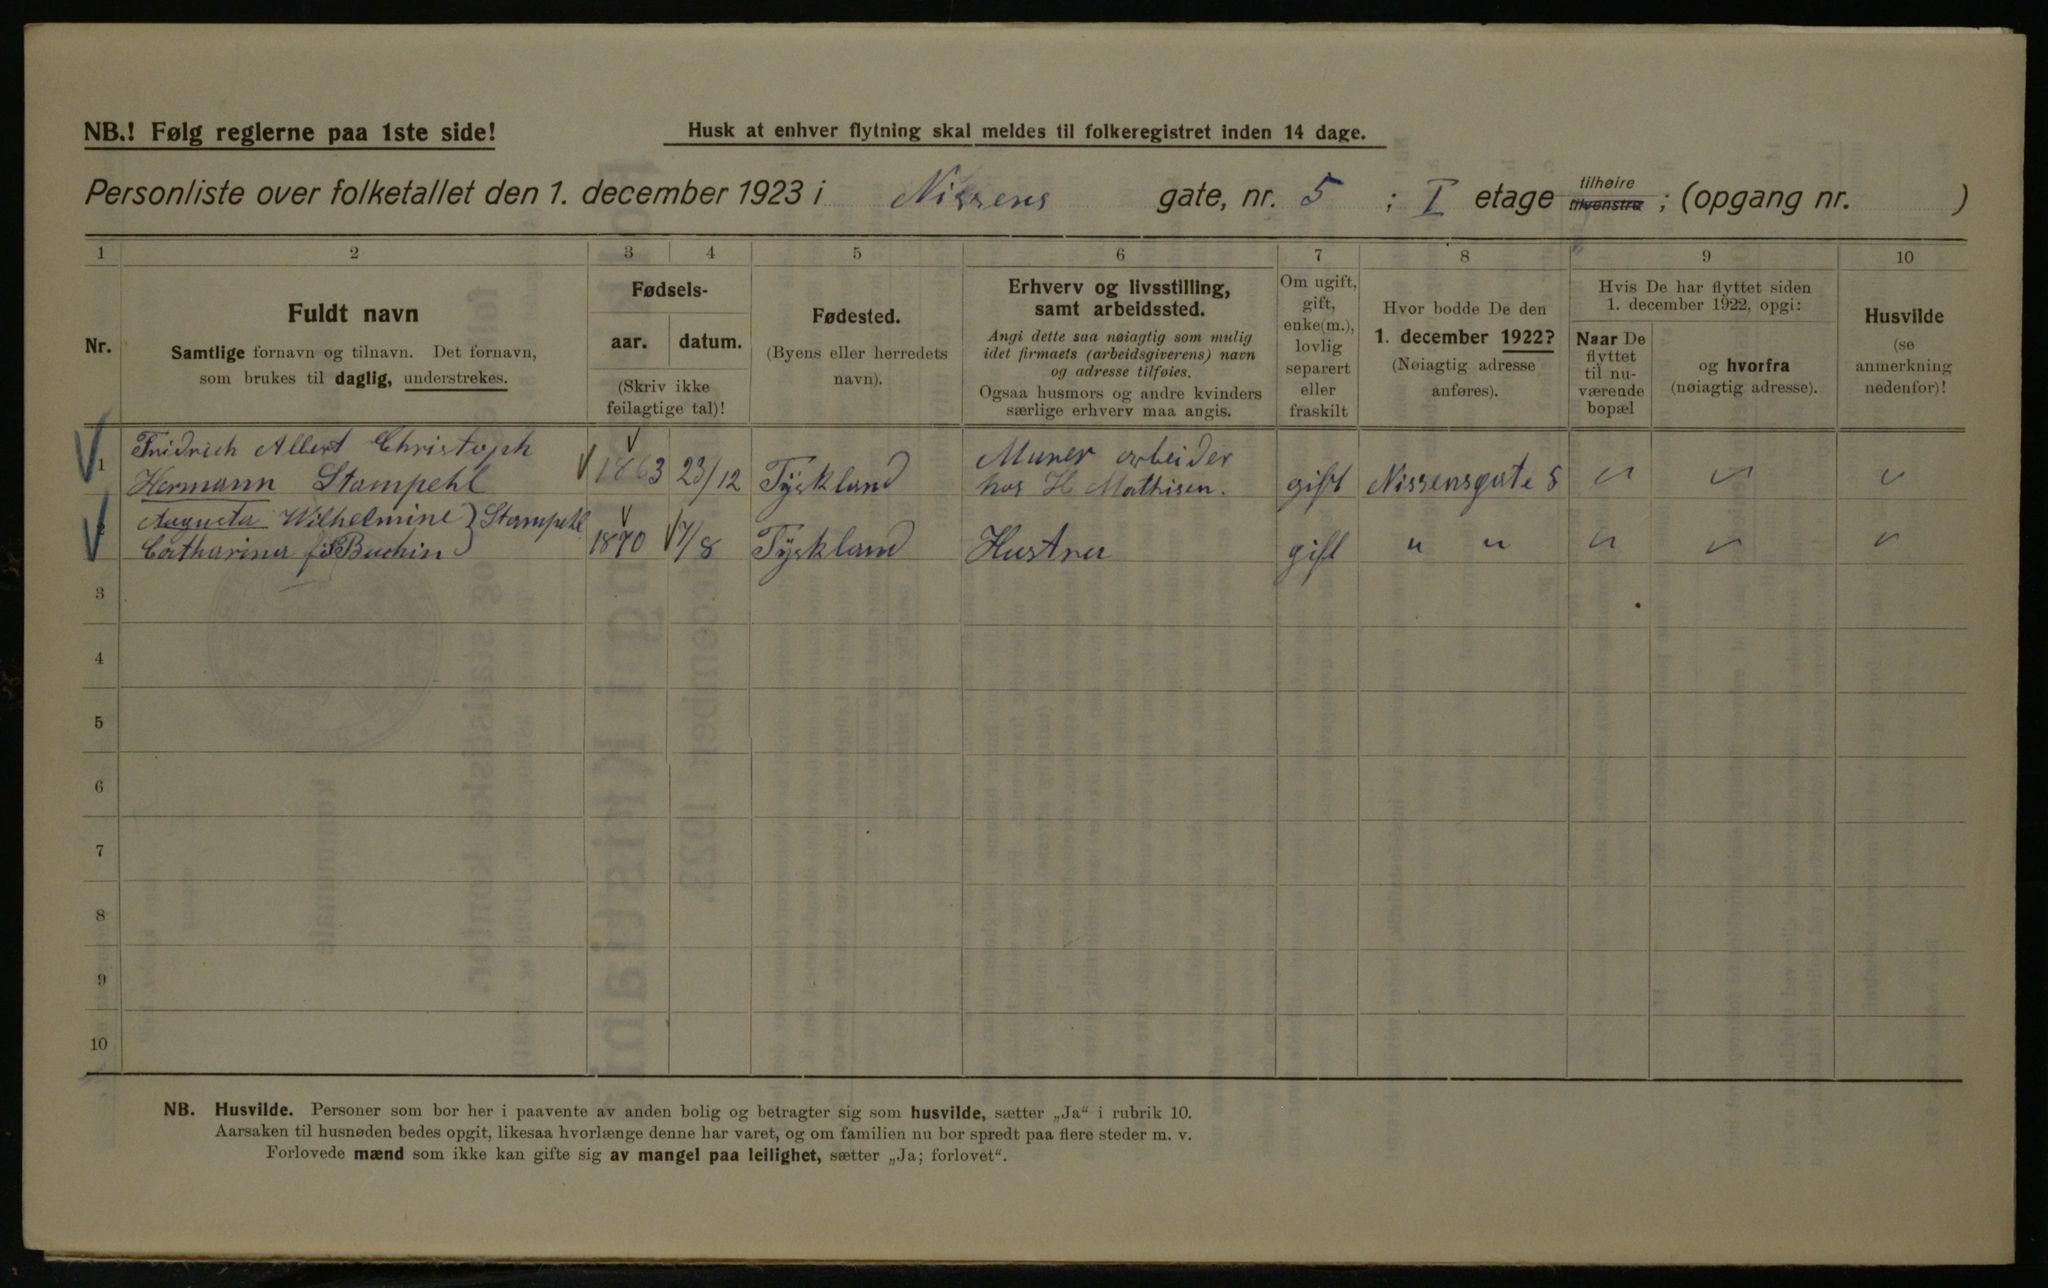 NB.! Følg reglerne paa 1ste side!
Husk at enhver flytning skal meldes til folkeregistret inden 14 dage.
Personliste over folketallet den 1. december 1923 i Nissens gate, nr. 5 ; I etage tilhøire tilvenstre ; (opgang nr. )
1 2 3 4 5 6 7 8 9 10
Nr.
Fuldt navn
Samtlige fornavn og tilnavn. Det fornavn,
som brukes til daglig, understrekes.
Fødsels-
aar. datum.
(Skriv ikke
feilagtige tal)!
Fødested.
(Byens eller herredets
navn).
Erhverv og livsstilling,
samt arbeidssted.
Angi dette saa nøiagtig som mulig
idet firmaets (arbeidsgiverens) navn
og adresse tilføies.
Ogsaa husmors og andre kvinders
særlige erhverv maa angis.
Om ugift,
gift,
enke(m.),
lovlig
separert
eller
fraskilt
Hvor bodde De den
1. december 1922?
(Nøiagtig adresse
anføres).
Hvis De har flyttet siden
1. december 1922, opgi:
Naar De
flyttet
til nu-
værende
bopæl
og hvorfra
(nøiagtig adresse).
Husvilde
(se
anmerkning
nedenfor)!
Fridrich Albert Christoph Murer arbeider
1 Hermann Stampehl 1863 23/12 Tyskland hos H Mathisen. gift Nissensgate 5
Augusta Wilhelmine } Stampehl
Catharina Buchin 1870 7/8 Tyskland Hustru gift " "
3
4
5
6
7
8
9
10
NB. Husvilde. Personer som bor her i paavente av anden bolig og betragter sig som husvilde, sætter „Ja“ i rubrik 10.
Aarsaken til husnøden bedes opgit, likesaa hvorlænge denne har varet, og om familien nu bor spredt paa flere steder m. v.
Forlovede mænd som ikke kan gifte sig av mangel paa leilighet, sætter „Ja; forlovet“.